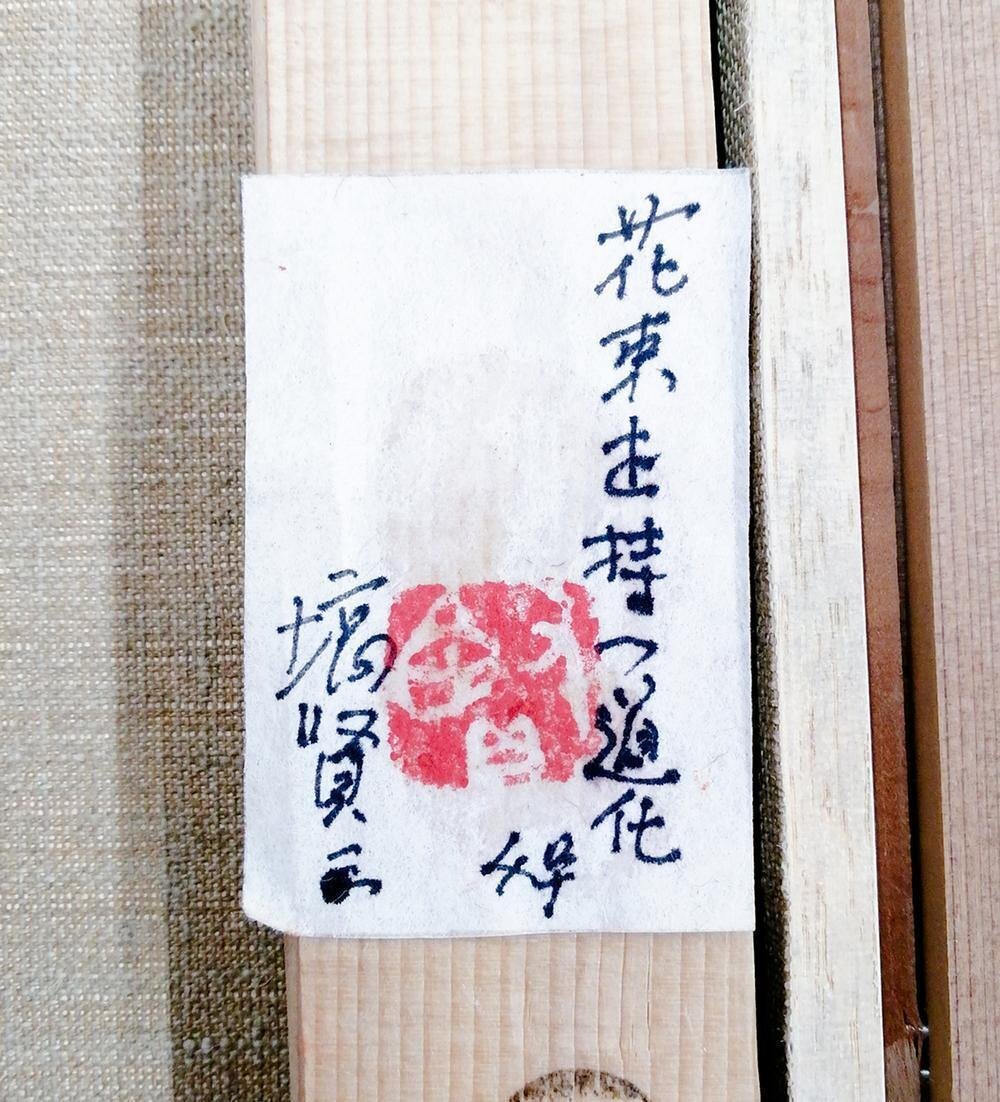 花束を持つ道化
塙賢三